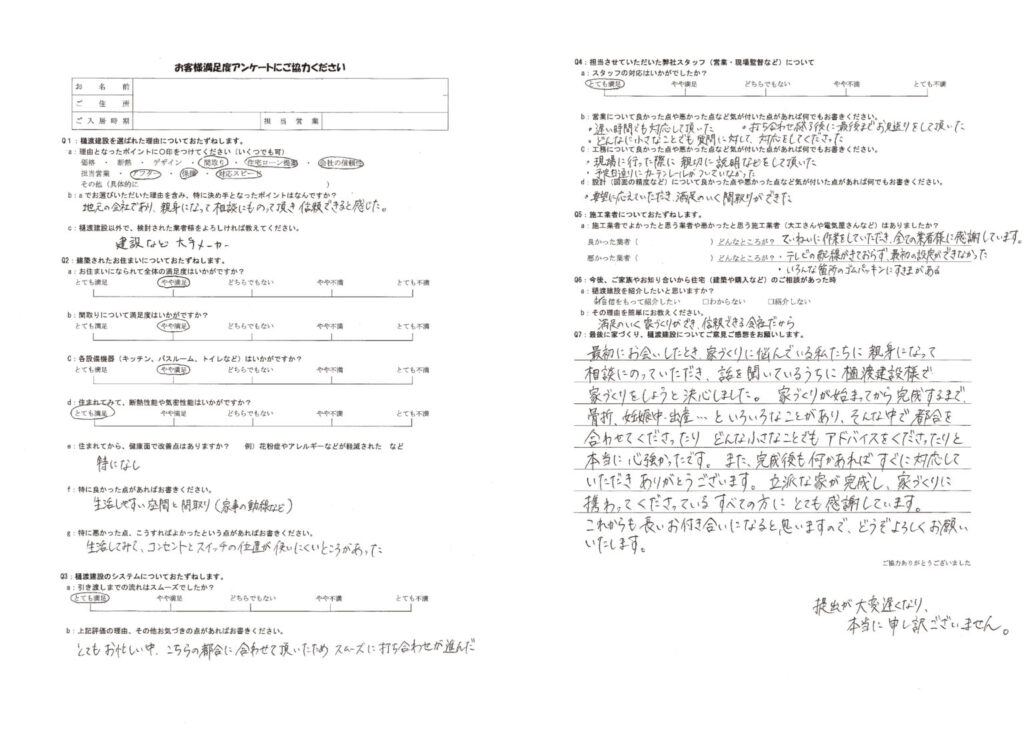 お客様満足度アンケートにご協力ください
お名前
ご住所
ご入居時期 担当営業
Q1：樋渡建設を選ばれた理由についておたずねします。
a：理由となったポイントに○印をつけてください（いくつでも可）
価格 ・ 断熱 ・ デザイン ・ 間取り ・ 住宅ローン提案 ・ 会社の信頼性
担当営業 ・ アフター ・ 保障 ・ 対応スピード
その他（具体的に ）
b：aでお選びいただいた理由を含み、特に決め手となったポイントはなんですか？
地元の会社であり、親身になって相談にものって頂き信頼できると感じた。
c：樋渡建設以外で、検討された業者様をよろしければ教えてください。
建設など 大手メーカー
Q2：建築されたお住まいについておたずねします。
a：お住まいになられて全体の満足度はいかがですか？
とても満足 やや満足 どちらでもない やや不満 とても不満
b：間取りについて満足度はいかがですか？
とても満足 やや満足 どちらでもない やや不満 とても不満
C：各設備機器（キッチン、バスルーム、トイレなど）はいかがですか？
とても満足 やや満足 どちらでもない やや不満 とても不満
d：住まれてみて、断熱性能や気密性能はいかがですか？
とても満足 やや満足 どちらでもない やや不満 とても不満
e：住まれてから、健康面で改善点はありますか？ 例）花粉症やアレルギーなどが軽減された など
特になし
f：特に良かった点があればお書きください。
生活しやすい空間と間取り（家事の動線など）
g：特に悪かった点、こうすればよかったという点があればお書きください。
生活してみて、コンセントとスイッチの位置が使いにくいところがあった
Q3：樋渡建設のシステムについておたずねします。
a：引き渡しまでの流れはスムーズでしたか？
とても満足 やや満足 どちらでもない やや不満 とても不満
b：上記評価の理由、その他お気づきの点があればお書きください。
とてもお忙しい中、こちらの都合に合わせて頂いたため スムーズに打ち合わせが進んだ
Q4：担当させていただいた弊社スタッフ（営業・現場監督など）について
a：スタッフの対応はいかがでしたか？
とても満足 やや満足 どちらでもない やや不満 とても不満
b：営業について良かった点や悪かった点など気が付いた点があれば何でもお書きください。
・遅い時間でも対応して頂いた ・打ち合わせ終了後に最後までお見送りをして頂いた
・どんなに小さなことでも質問に対して、対応をしてくださった
C：工務について良かった点や悪かった点など気が付いた点があれば何でもお書きください。
・現場に行った際に親切に説明などをして頂いた
・予定日通りにカーテンレールがついていなかった
d：設計（図面の精度など）について良かった点や悪かった点など気が付いた点があれば何でもお書きください。
・要望に応えていただき、満足のいく間取りができた
Q5：施工業者についておたずねします。
a：施工業者でよかったと思う業者や悪かったと思う施工業者（大工さんや電気屋さんなど）はありましたか？
良かった業者（ ）どんなところが？ ていねいに作業をしていただき、全ての業者様に感謝しています。
悪かった業者（ ）どんなところが？ ・テレビの配線ができておらず、最初の設定ができなかった
・いろんな箇所のゴムパッキンにすきまがある
Q6：今後、ご家族やお知り合いから住宅（建築や購入など）のご相談があった時
a：樋渡建設を紹介したいと思いますか？
☑自信をもって紹介したい □わからない □紹介しない
b：その理由を簡単にお教えください。
満足のいく家づくりができ、信頼できる会社だから
Q7：最後に家づくり、樋渡建設についてご意見ご感想をお願いします。
最初にお会いしたとき、家づくりに悩んでいる私たちに親身になって
相談にのっていただき、話を聞いているうちに樋渡建設様で
家づくりをしようと決心しました。 家づくりが始まってから完成するまで、
骨折、妊娠中・出産… といろいろなことがあり、そんな中で都合を
合わせてくださったり どんな小さなことでもアドバイスをくださったりと
本当に心強かったです。 また、完成後も何かあればすぐに対応して
いただきありがとうございます。 立派な家が完成し、家づくりに
携わってくださっているすべての方にとても感謝しています。
これからも長いお付き合いになると思いますので、どうぞよろしくお願い
いたします。
ご協力ありがとうございました
提出が大変遅くなり、
本当に申し訳ございません。